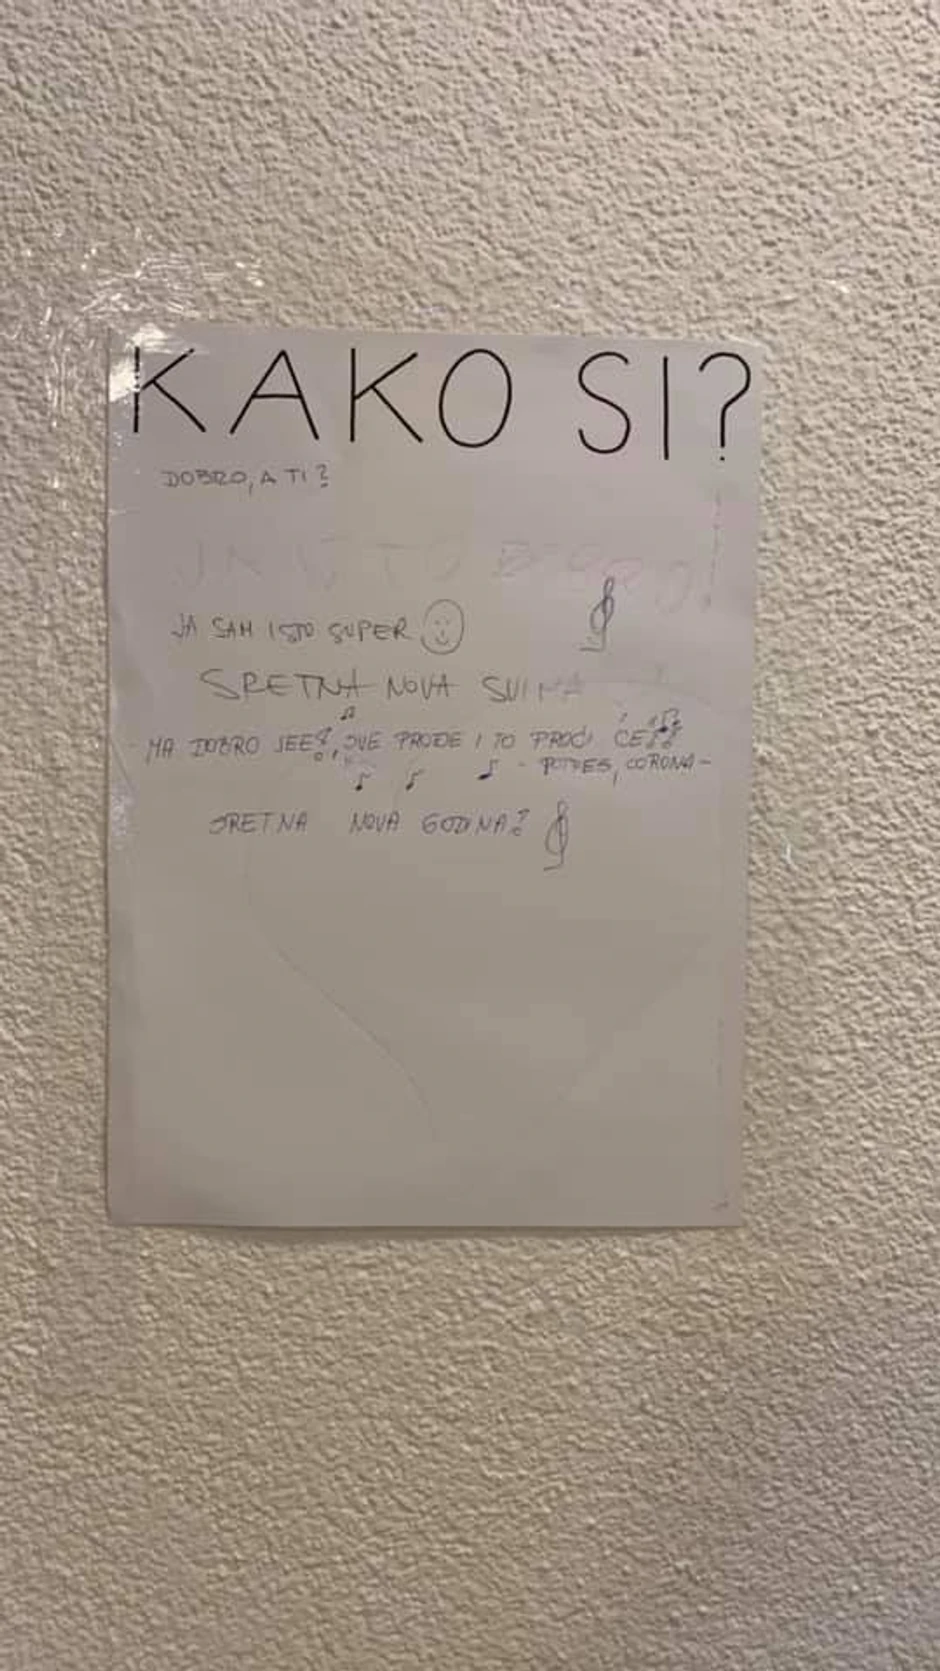 KAKO SI?
DOBRO, A TI?
JA ISTO DOBRO!
JA SAM ISTO SUPER
SRETNA NOVA SVIMA
MA DOBRO JEE!, SVE PROĐE I TO PROĆI ĆE
- POTRES, CORONA -
SRETNA NOVA GODINA!